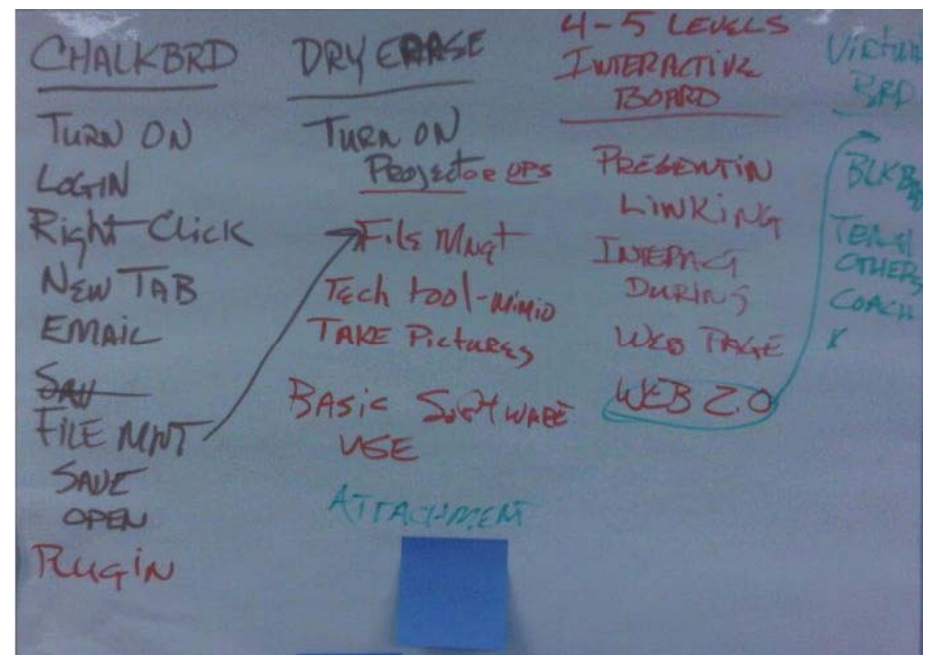 CHALKBRD
TURN ON
LOGIN
Right Click
NEW TAB
EMAIL
SAV
FILE MNT
SAVE
OPEN
PLUGIN
DRY ERASE
TURN ON
Projector UPS
File Mngt
Tech tool-mimio
TAKE Pictures
BASIC Software
USE
ATTACHMENT
4-5 LEVELS
INTERACTIVE
BOARD
PRESENTIN
LINKING
INTERACT
DURING
WEB PAGE
WEB 2.0
Virtual
BRD
BLKB
TEACH
OTHERS
COACH